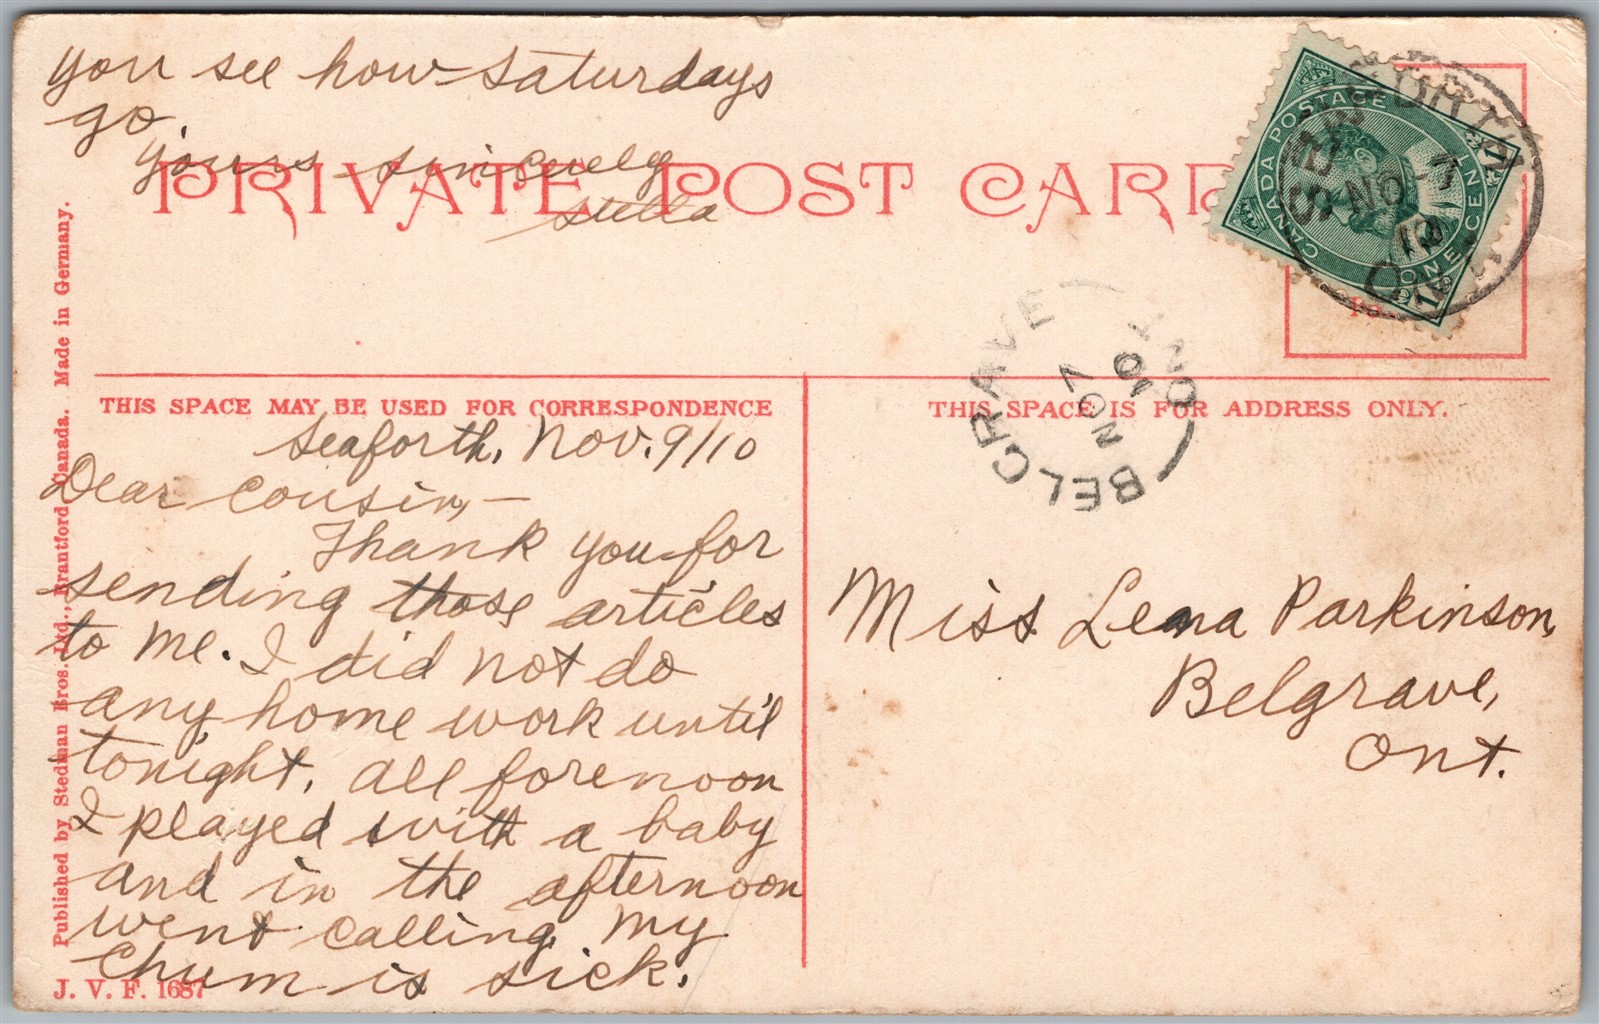 you see how Saturdays
go.
Yours sincerely
Stella
PRIVATE POST CARD
CANADA POSTAGE
ONE CENT
1 1
NO 7
10
ONT
BELGRAVE
NO 7
10
ONT
THIS SPACE MAY BE USED FOR CORRESPONDENCE
Seaforth, Nov. 9/10
Dear Cousin,—
Thank you for
sending those articles
to me. I did not do
any home work until
tonight. All forenoon
I played with a baby
and in the afternoon
went calling. My
Chum is sick.
THIS SPACE IS FOR ADDRESS ONLY.
Miss Lena Parkinson,
Belgrave,
Ont.
Published by Stedman Bros. Ltd., Brantford, Canada. Made in Germany.
J. V. F. 1687